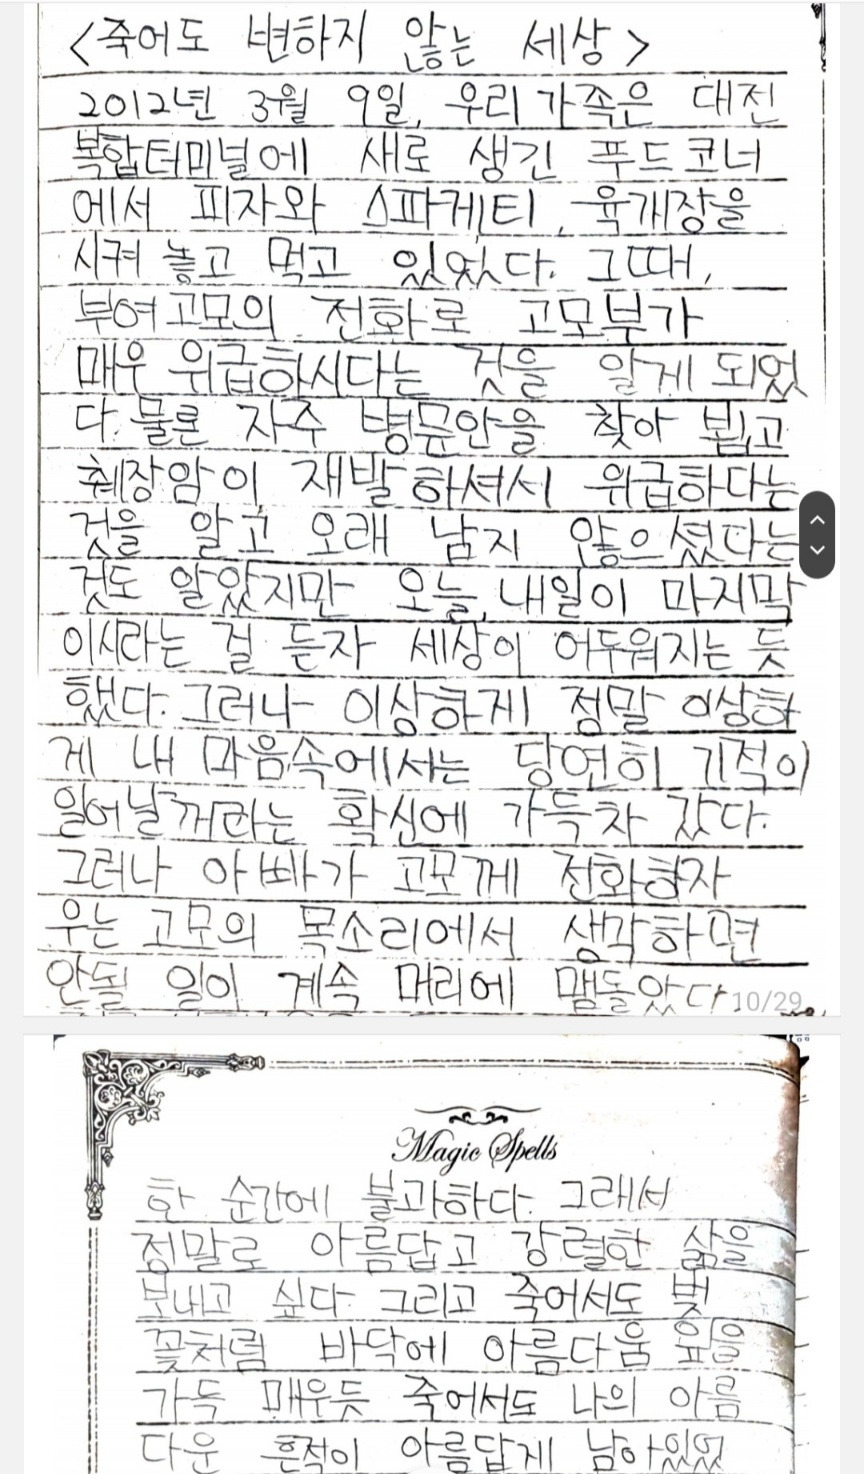 <죽어도 변하지 않는 세상>
2012년 3월 9일, 우리 가족은 대전
복합터미널에 새로 생긴 푸드코너
에서 피자와 스파게티, 육개장을
시켜 놓고 먹고 있었다. 그때,
부여고모의 전화로 고모부가
매우 위급하시다는 것을 알게 되었
다. 물론 자주 병문안을 찾아 뵙고
췌장암이 재발하셔서 위급하다는
것을 알고 오래 남지 않으셨다는
것도 알았지만 오늘, 내일이 마지막
이시라는 걸 듣자 세상이 어두워지는 듯
했다. 그러나 이상하게 정말 이상하
게 내 마음속에서는 당연히 기적이
일어날꺼라는 확신에 가득차 갔다.
그러나 아빠가 고모께 전화하자
우는 고모의 목소리에서 생각하면
안될 일이 계속 머리에 맴돌았다
10/29
Magic Spells
한 순간에 불과하다. 그래서
정말로 아름답고 강렬한 삶을
보내고 싶다. 그리고 죽어서도 벚
꽃처럼 바닥에 아름다움 잎을
가득 매우듯 죽어서도 나의 아름
다운 흔적이 아름답게 남아있었